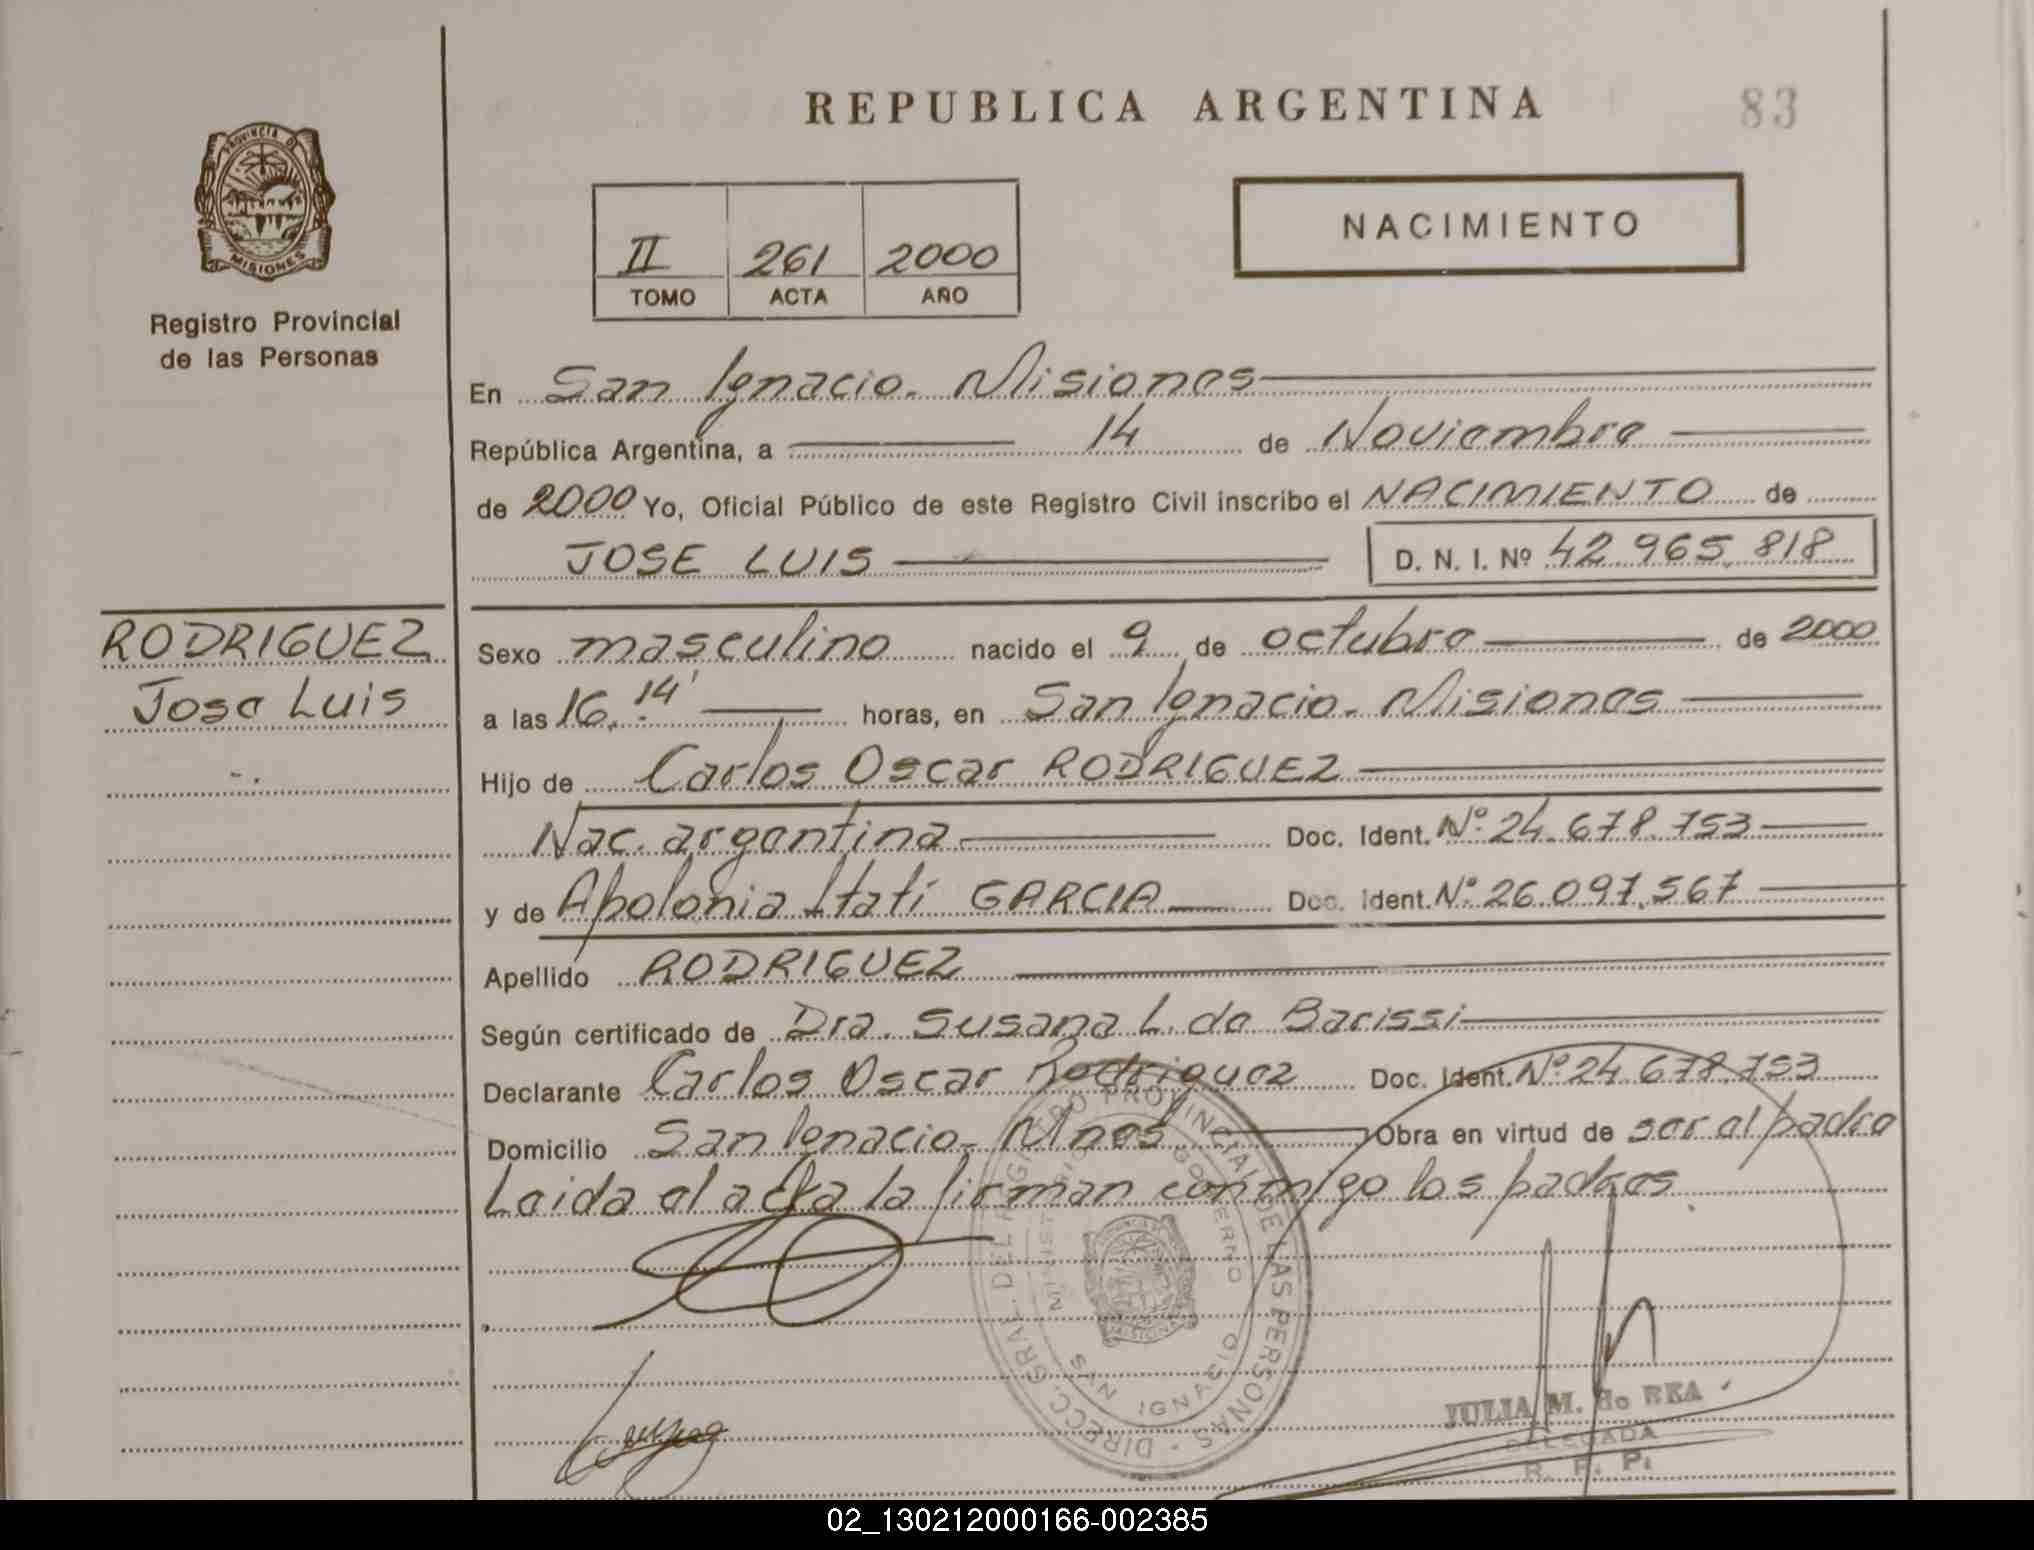 REPUBLICA ARGENTINA
83
PROVINCIA D
MISIONES
Registro Provincial
de las Personas
II 261 2000
TOMO ACTA AÑO
NACIMIENTO
En San Ignacio. Misiones
República Argentina, a 14 de Noviembre
de 2000 Yo, Oficial Público de este Registro Civil inscribo el NACIMIENTO de
JOSE LUIS D. N. I. Nº 42.965.818
RODRIGUEZ
Jose Luis
Sexo masculino nacido el 9 de octubre de 2000
a las 16.14' horas, en San Ignacio. Misiones
Hijo de Carlos Oscar RODRIGUEZ
Nac. argentina Doc. Ident. Nº 24.678.753
y de Apolonia Itatí GARCIA Doc. Ident. Nº 26.097.567
Apellido RODRIGUEZ
Según certificado de Dra. Susana L. de Barissi
Declarante Carlos Oscar Rodriguez Doc. Ident. Nº 24.678.753
Domicilio San Ignacio. Mnes Obra en virtud de ser el padre
Leida el acta la firman conmigo los padres.
DIRECC. GRAL. DEL REGISTRO PROVINCIAL DE LAS PERSONAS
MINISTERIO GOBIERNO
SAN IGNACIO
MISIONES
JULIA M. de REA
DELEGADA
R. P. P.
02_130212000166-002385